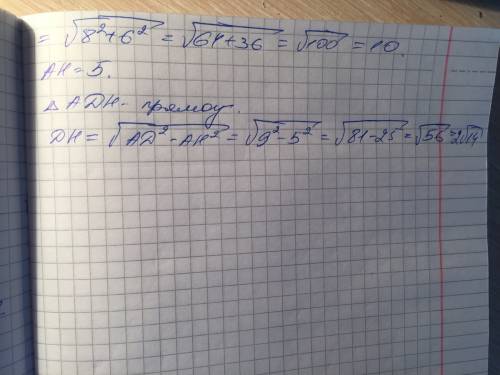 = √(8²+6²) = √(64+36) = √100 = 10.
AH = 5.
△ ADH - прямоу.
DH = √(AD² - AH²) = √(9² - 5²) = √(81-25) = √56 = 2√14